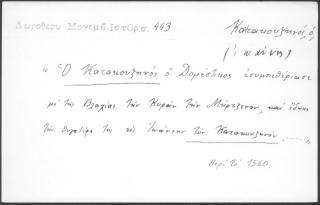 Δωροθέου Μονεμβ. Ιστορ. σ. 443
Κατακουζηνός, ὁ
(Ἰωάννης)
" Ὁ Κατακουζηνός ὁ Δομέστικος ἐσυμπεθέριασε
μέ τῆς Βλαχίας τῶν Κυρῶν τῶν Μύρτζεναν, καί ἔδωκε
τήν θυγατέρα της τοῦ Ἰωάννην τῶν Κατακουζηνόν, .....„
Περί τό 1360.